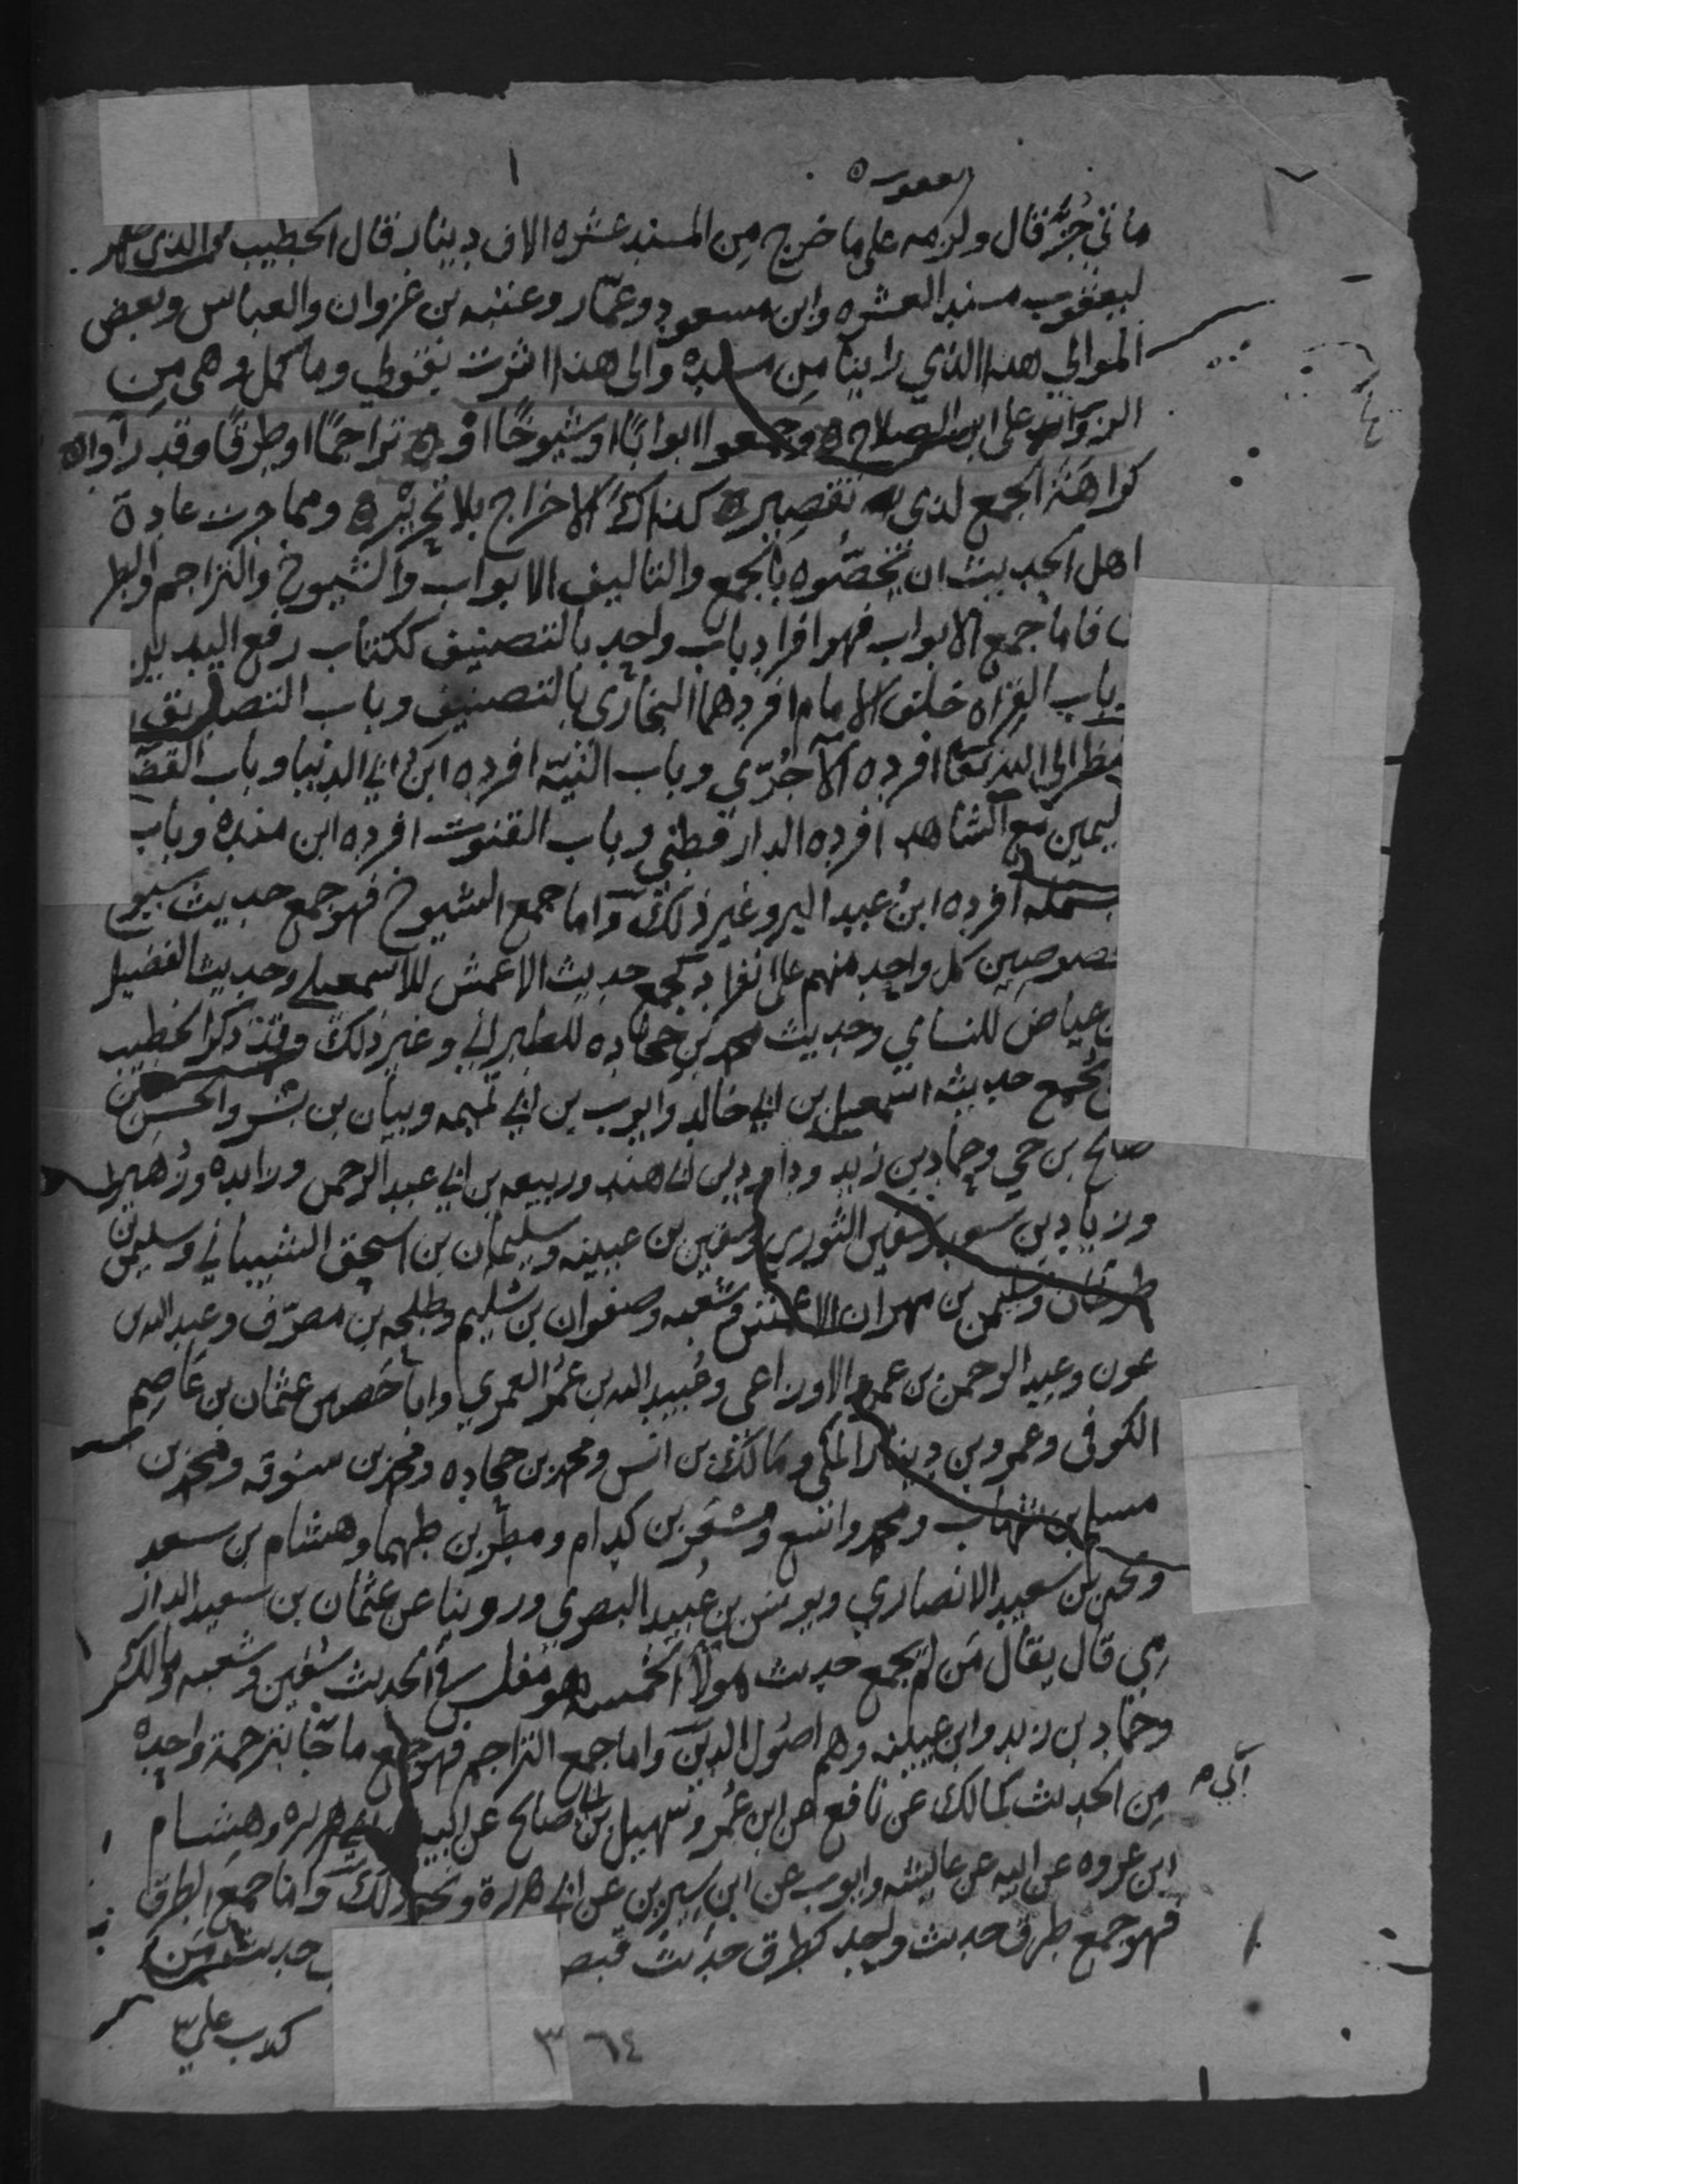 مائتي جزء قال ولزمه على ما خرج من المسند عشره الاف دينار قال الخطيب والذي ظهر
ليعقوب مسند العشره وابن مسعود وعمار وعتبه بن غزوان والعباس وبعض
الموالي هذا الذي راينا من مسنده والى هذا اشرت بقولي وما كمل وهي من
الزوائد على ابن الصلاح وجمعوا ابوابا اوشيوخا او تراجما اوطرقا وقد راوا
كراهة الجمع لذي تقصير كذاك الاخراج بلا تحرير ومما جرت عادة
اهل الحديث ان يخصوه بالجمع والتاليف الابواب والشيوخ والتراجم والطر
فاما جمع الابواب فهو افراد باب واحد بالتصنيف ككتاب رفع اليدين
باب القراه خلف الامام افردهما البخاري بالتصنيف وباب التصديق
بالنظر الى الله تعا افرده الآجري وباب النية افرده ابن ابي الدنيا وباب القضا
ليمين مع الشاهد افرده الدارقطني وباب القنوت افرده ابن منده وباب
بسمله افرده ابن عبد البر وغير ذلك واما جمع الشيوخ فهو جمع حديث شيوخ
خصوصين كل واحد منهم على انفراد كجمع حديث الاعمش للاسمعيلي وحديث الفضيل
عياض للنساي وحديث محمد بن جحاده للطبراني وغير ذلك وقد ذكر الخطيب
يجمع حديثه اسمعيل بن ابي خالد وايوب بن ابي تميمه وبيان بن بشر والحسن بن
صالح بن حي وحماد بن زيد وداود بن ابي هند وربيعه بن ابي عبد الرحمن وزايده وزهير
وزياد بن سعد وسفين الثوري وسفين بن عيينه وسليمان بن اسحق الشيباني وسليمن بن
طرخان وسليمن بن مهران الاعمش وشعبه وصفوان بن سليم وطلحه بن مصرف وعبد الله بن
عون وعبد الرحمن بن عمرو الاوزاعي وعبيد الله بن عمر العمري وابا حصين عثمان بن عاصم
الكوفي وعمرو بن دينار المكي ومالك بن انس ومحمد بن جحاده ومحمد بن سوقه ومحمد بن
مسلم بن شهاب ومحمد واسع ومسعر بن كدام ومطر بن طهما وهشام بن سعد
ويحيى بن سعيد الانصاري ويونس بن عبيد البصري وروينا عن عثمان بن سعيد الدار
مي قال يقال من لم يجمع حديث هولا الخمسه فهو مفلس في الحديث سفين وشعبه ومالك
وحماد بن زيد وابن عيينه وهم اصول الدين واما جمع التراجم فهو جمع ما جا بترجمة واحده
من الحديث كمالك عن نافع عن ابن عمر وسهيل بن ابي صالح عن ابيه هريره وهشام
ابن عروه عن ابيه عن عايشه وايوب عن ابن سيرين عن ابي هريرة ونحو ذلك واما جمع الطرق
فهو جمع طرق حديث واحد كطرق حديث قبض حديث من
كدب علي
٦٤ ٣